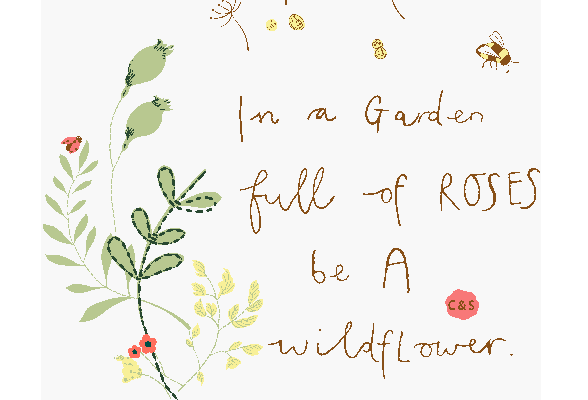 In a Garden
full of ROSES
be A
C&S
wildfLower.